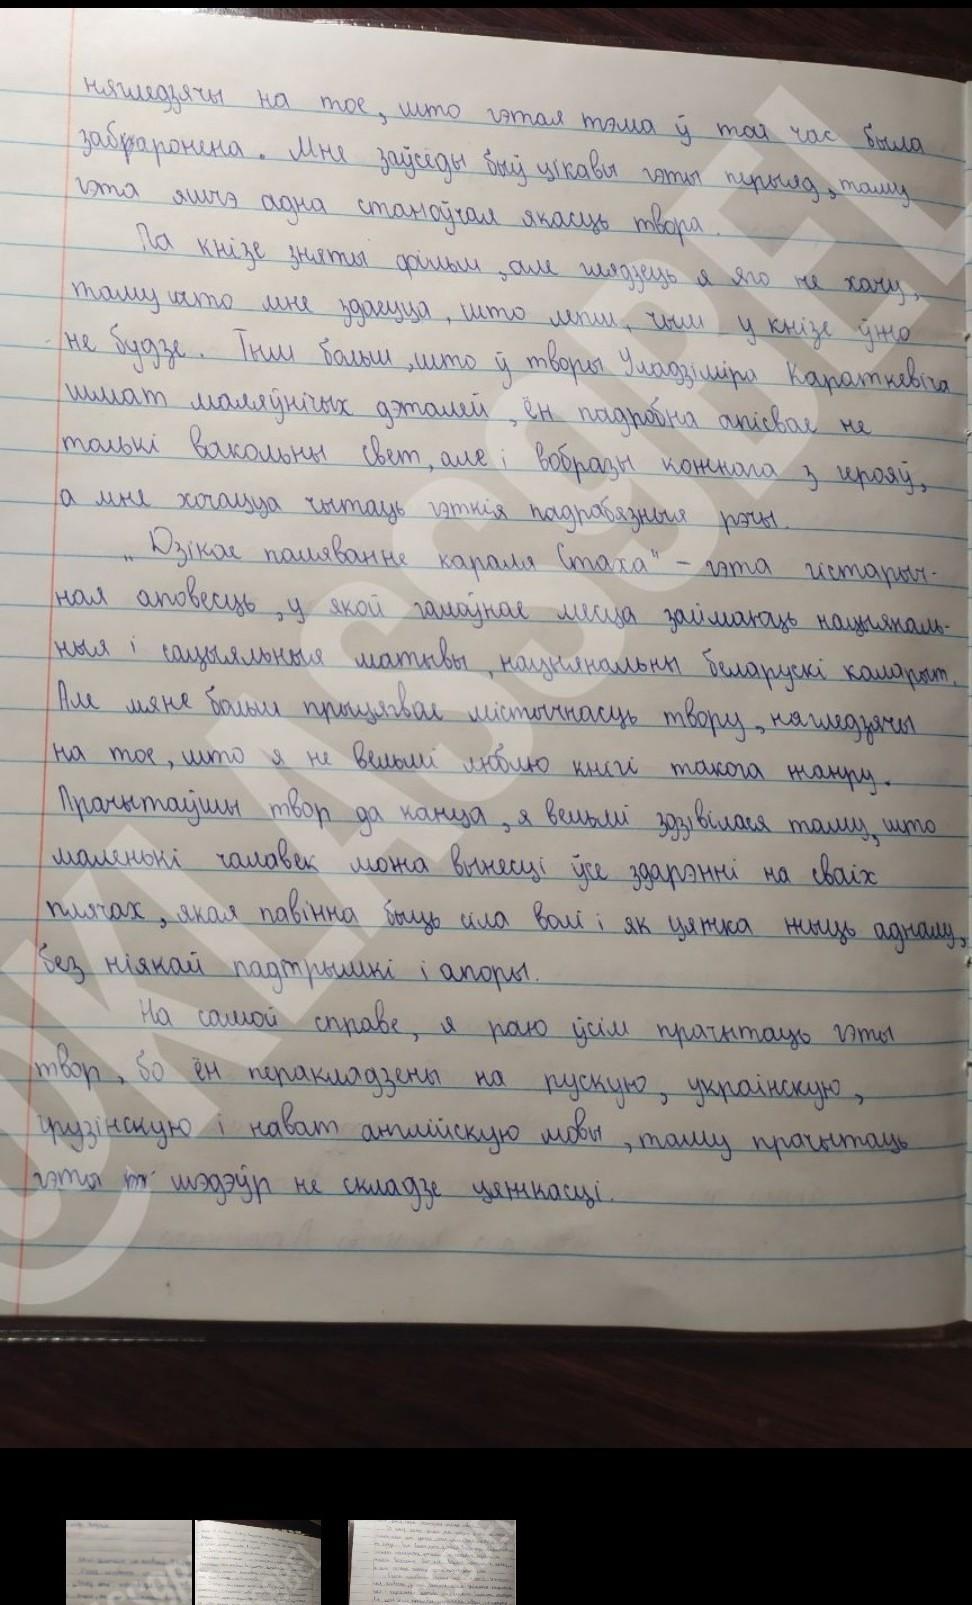 нягледзячы на тое, што гэтая тэма ў той час была
забаронена. Мне заўсёды быў цікавы гэты перыяд, таму
гэта яшчэ адна станоўчая якасць твора.
Па кнізе зняты фільм, але глядзець я яго не хачу,
таму што мне здаецца, што лепш, чым у кнізе ўжо
не будзе. Тым больш, што ў творы Уладзіміра Караткевіча
шмат маляўнічых дэталей, ён падробна апісвае не
толькі вакольны свет, але і вобразы кожнага з герояў,
а мне хочацца чытаць гэткія падрабязныя рэчы.
„Дзікае паляванне караля Стаха" – гэта гістарыч-
ная аповесць, у якой галоўнае месца займаюць нацыяналь-
ныя і сацыяльныя матывы, нацыянальны беларускі каларыт.
Але мяне больш прыцягвае містычнасць твору, нягледзячы
на тое, што я не вельмі люблю кнігі такога жанру.
Прачытаўшы твор да канца, я вельмі здзівілася таму, што
маленькі чалавек можа вынесці ўсе здарэнні на сваіх
плячах, якая павінна быць сіла волі і як цяжка жыць аднаму,
без ніякай падтрымкі і апоры.
На самой справе, я раю ўсім прачытаць гэты
твор, бо ён перакладзены на рускую, украінскую,
грузінскую і нават англійскую мовы, таму прачытаць
гэты шэдэўр не складзе цяжкасці.
OKLASS9BEL